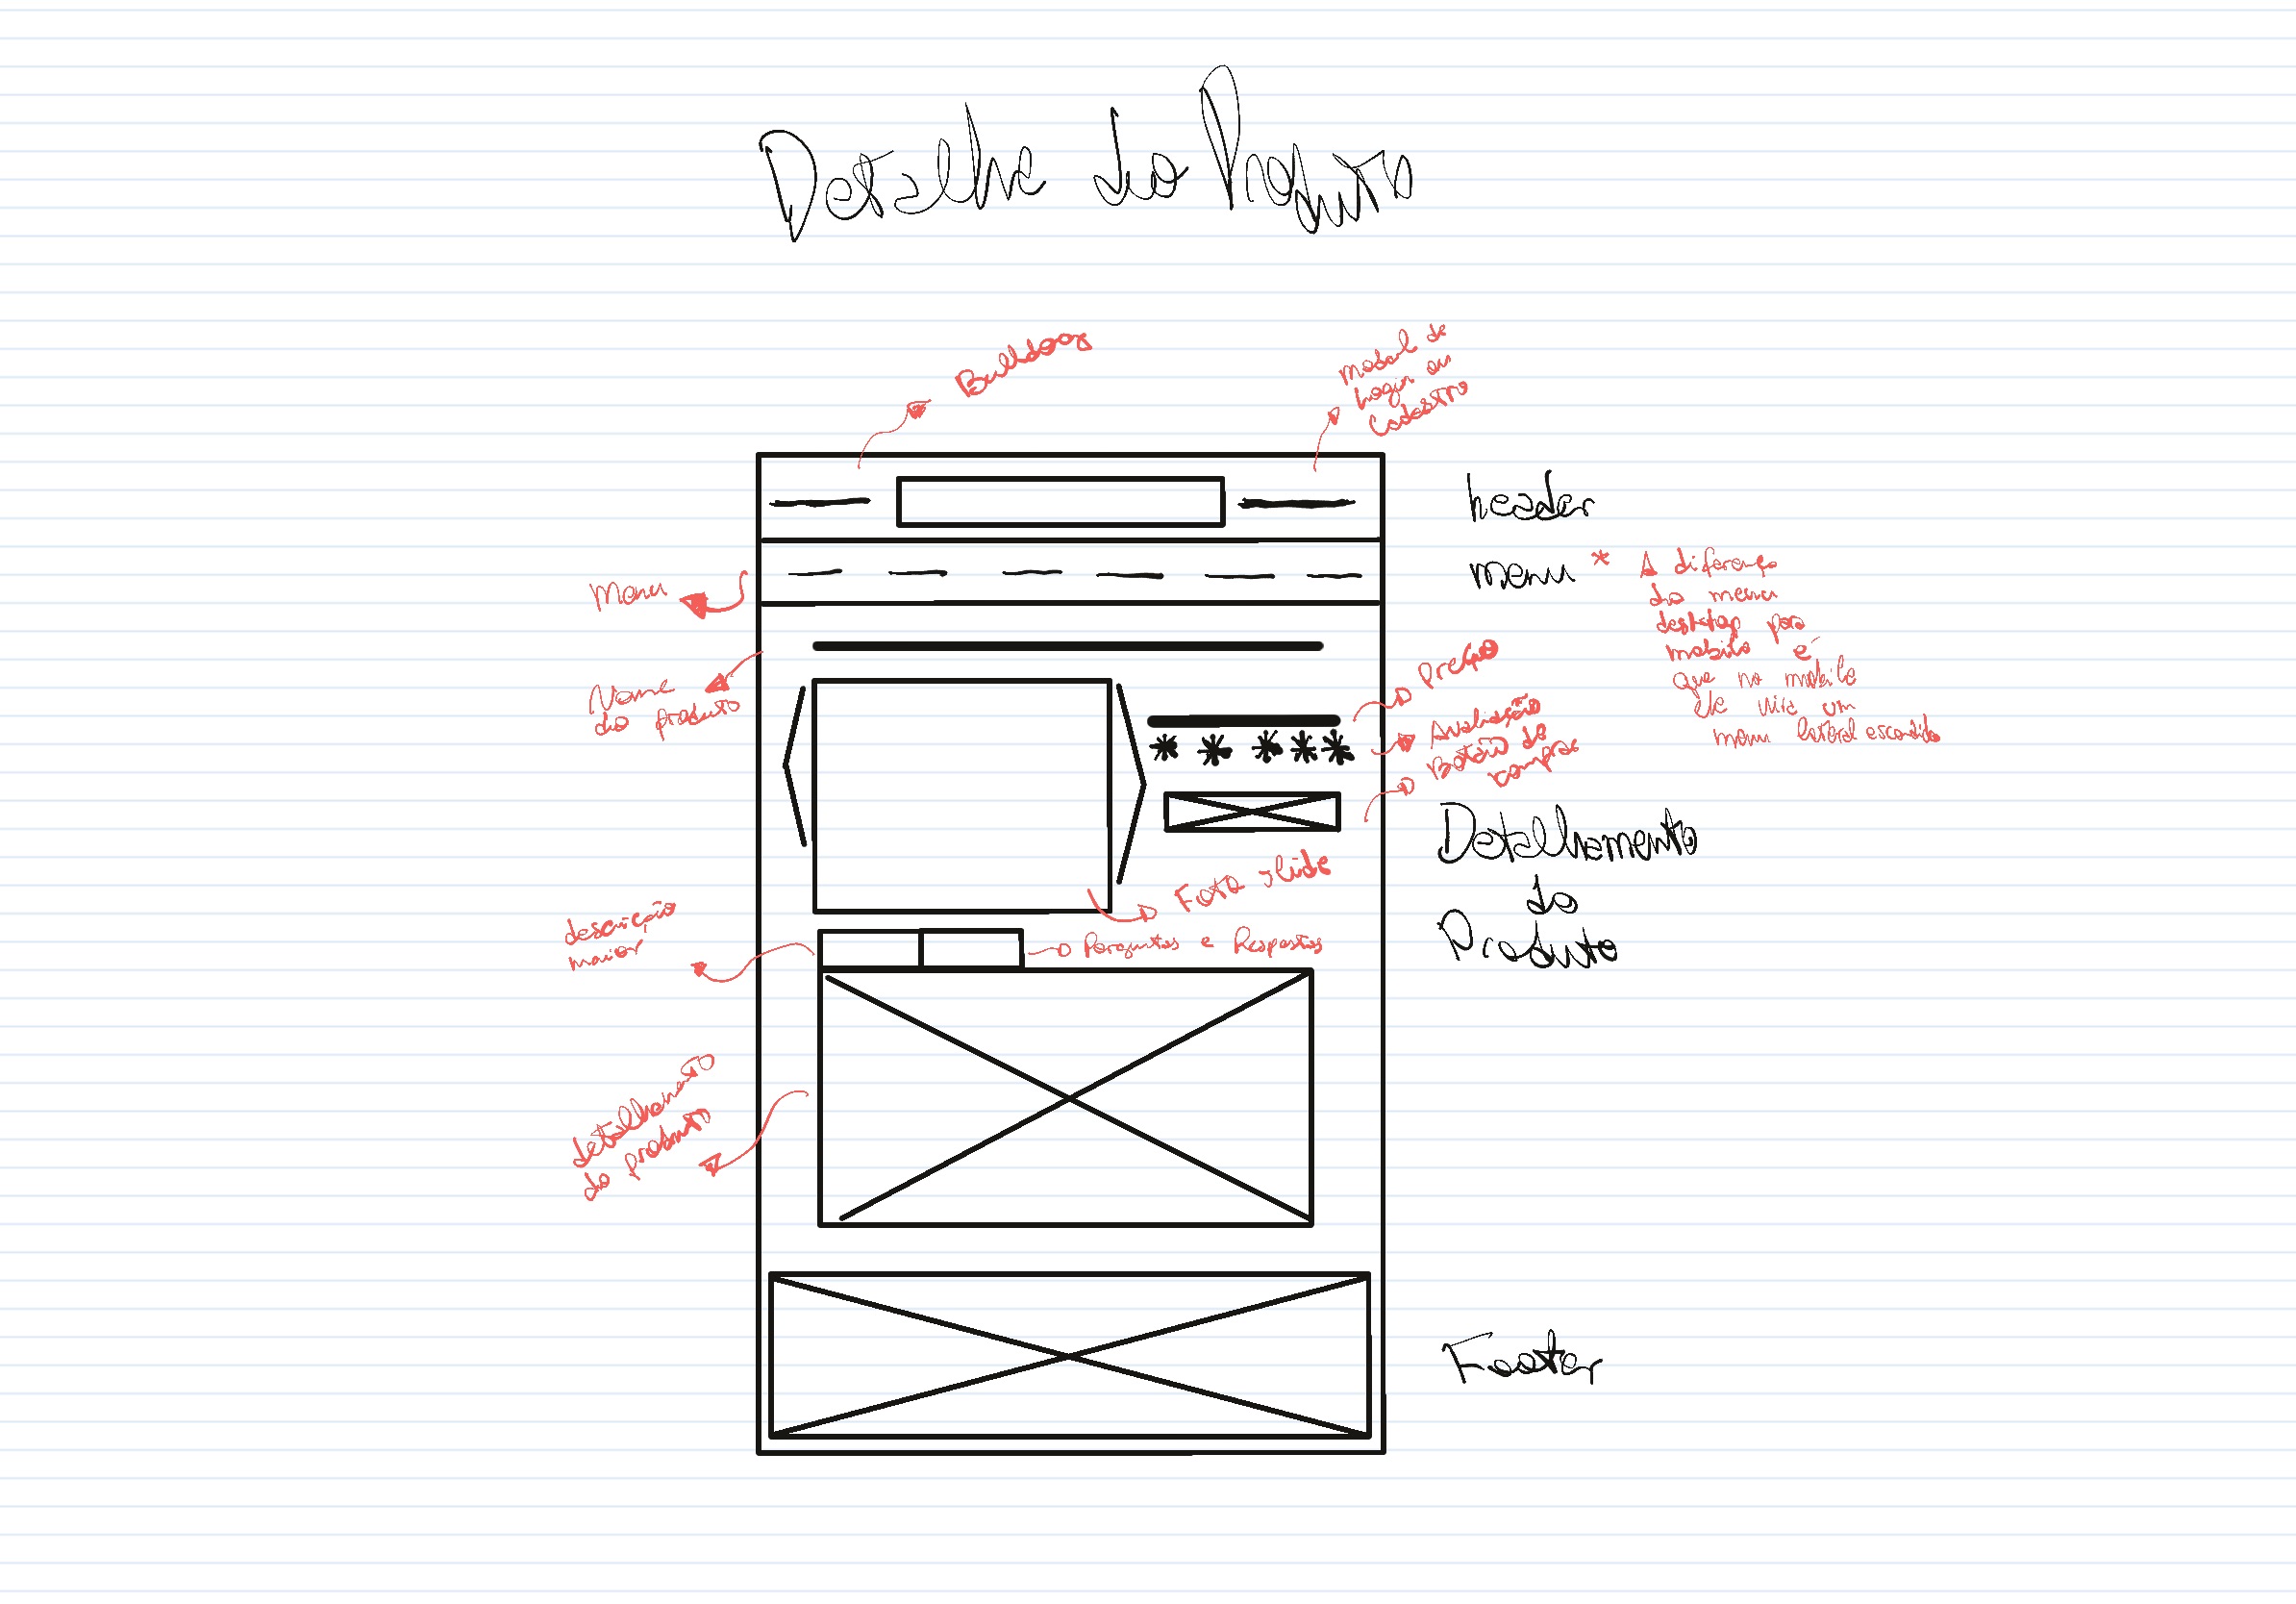 Detalhe do Produto
Bulldogs
modal de
login ou
Cadastro
header
menu * A diferença
do menu
desktop para
mobile é
que no mobile
ele vira um
menu lateral escondido
Menu
Nome
do produto
Preço
Avaliação
Botão de
compras
Foto slide
Detalhamento
do
Produto
descrição
maior
Perguntas e Respostas
detalhamento
do produto
Footer